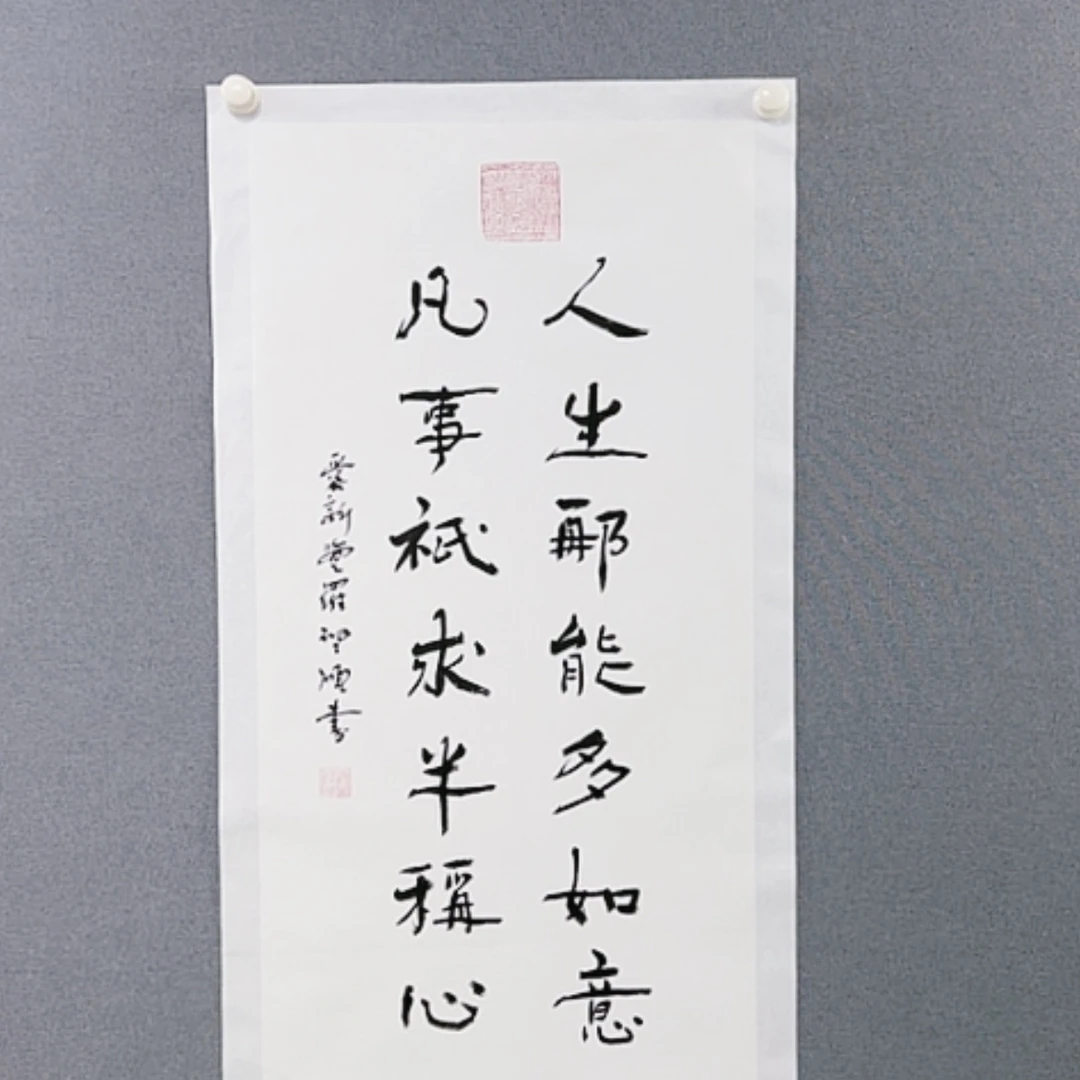 人生那能多如意
凡事祇求半稱心
愛新覺羅